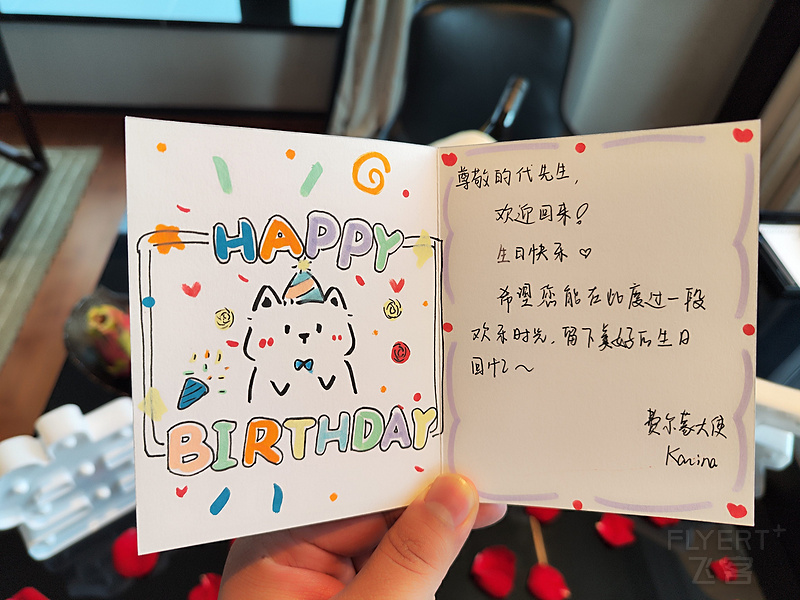 HAPPY
BIRTHDAY
尊敬的代先生,
欢迎回来!
生日快乐♡
希望您能在此度过一段
欢乐时光,留下美好的生日
回忆~
费尔蒙大使
Karina
FLYERT+
飞客